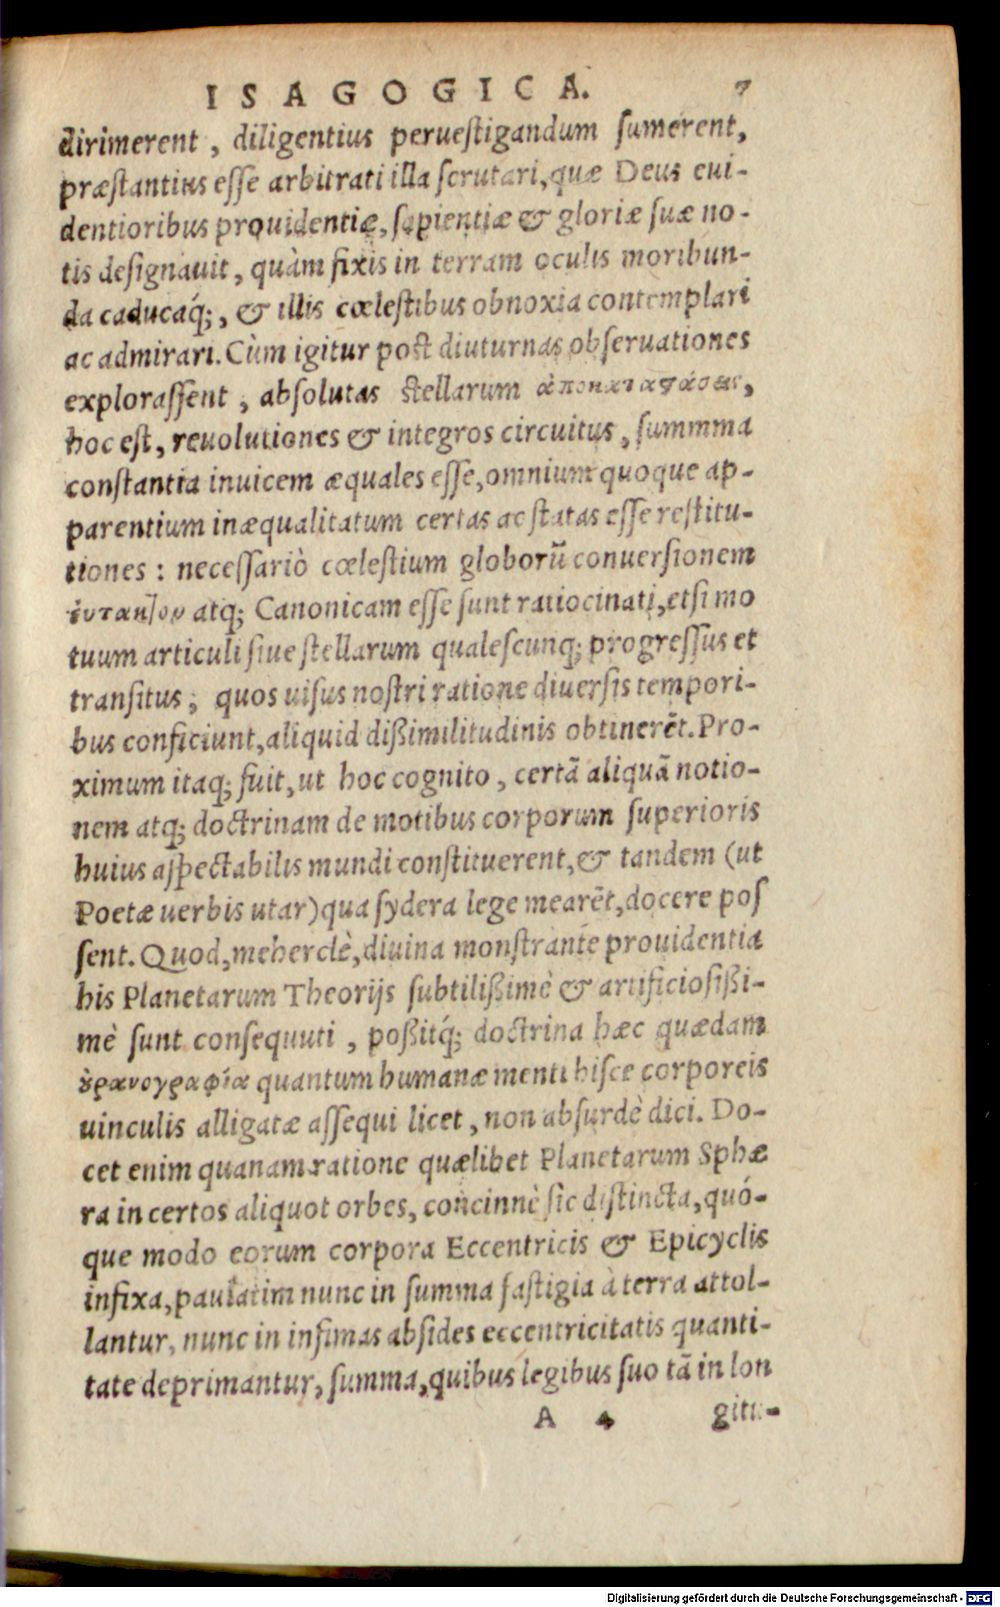 ISAGOGICA. 7
dirimerent, diligentius peruestigandum sumerent,
præstantius esse arbitrati illa scrutari, quæ Deus eui-
dentioribus prouidentiæ, sapientiæ & gloriæ suæ no-
tis designauit, quàm fixis in terram oculis moribun-
da caducaq́;, & illis cœlestibus obnoxia contemplari
ac admirari. Cùm igitur post diuturnas obseruationes
explorassent, absolutas stellarum ἀποκαταϛάσεις,
hoc est, reuolutiones & integros circuitus, summma
constantia inuicem æquales esse, omnium quoque ap-
parentium inæqualitatum certas ac statas esse restitu-
tiones: necessariò cœlestium globorũ conuersionem
ἐυτακτον atq; Canonicam esse sunt ratiocinati, etsi mo
tuum articuli siue stellarum qualescunq; progressus et
transitus, quos uisus nostri ratione diuersis tempori-
bus conficiunt, aliquid dißimilitudinis obtinerẽt. Pro-
ximum itaq; fuit, ut hoc cognito, certã aliquã notio-
nem atq; doctrinam de motibus corporum superioris
huius aspectabilis mundi constituerent, & tandem (ut
Poetæ uerbis utar) qua sydera lege mearẽt, docere pos
sent. Quod, meherclè, diuina monstrante prouidentia
his Planetarum Theorijs subtilißimè & artificiosißi-
mè sunt consequuti, poßitq́; doctrina hæc quædam
ȣ̓ρανογραφία quantum humanæ menti hisce corporeis
uinculis alligatæ assequi licet, non absurdè dici. Do-
cet enim quanam ratione quælibet Planetarum Sphæ
ra in certos aliquot orbes, concinnè sic distincta, quó-
que modo eorum corpora Eccentricis & Epicyclis
infixa, paulatim nunc in summa fastigia à terra attol-
lantur, nunc in infimas absides eccentricitatis quanti-
tate deprimantur, summa, quibus legibus suo tã in lon
A 4 gitu-
Digitalisierung gefördert durch die Deutsche Forschungsgemeinschaft - DFG